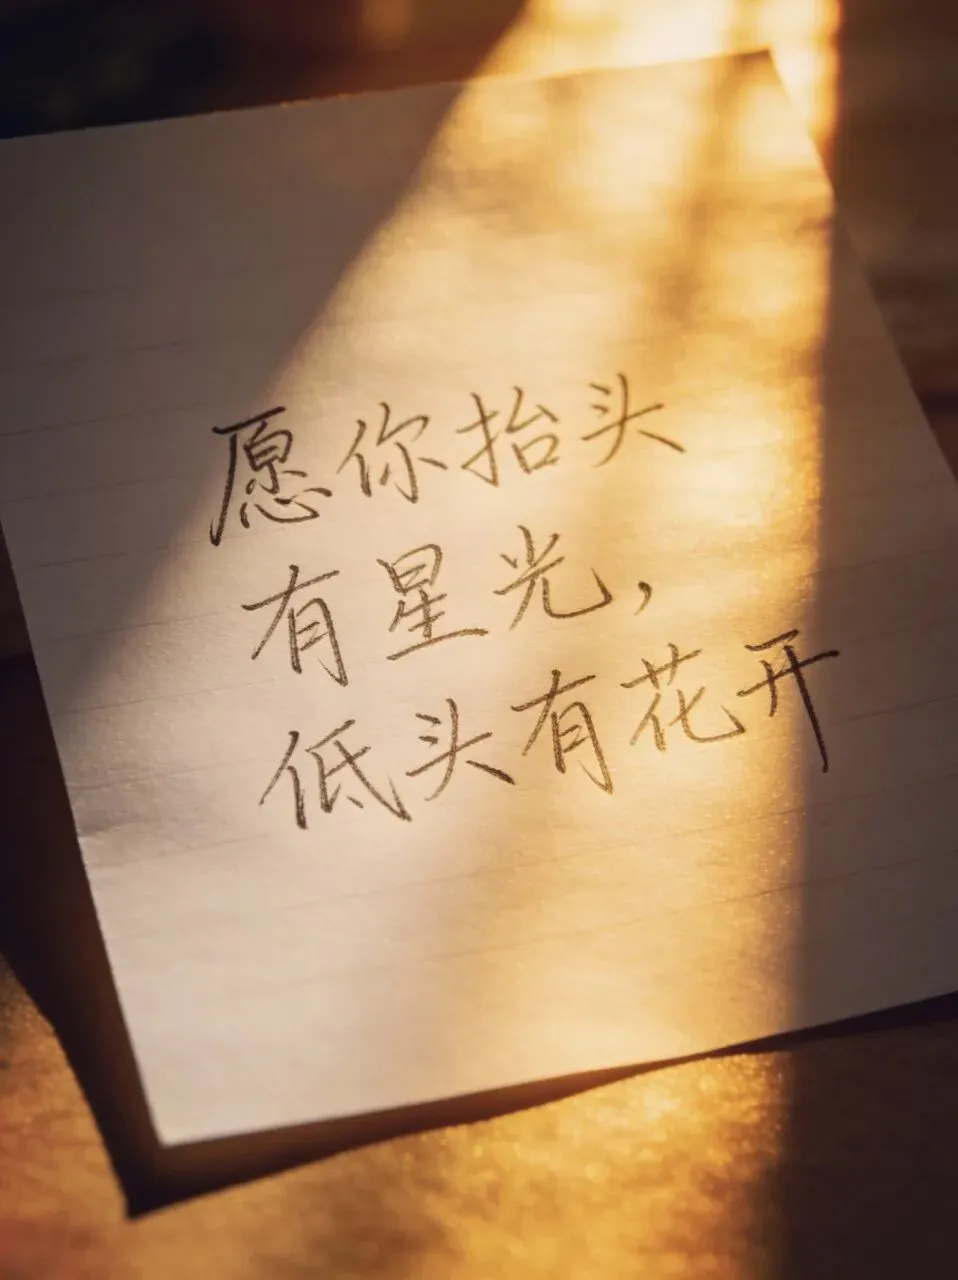 愿你抬头
有星光，
低头有花开